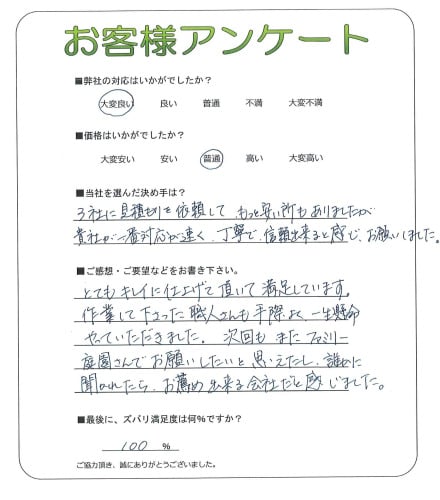 お客様アンケート
■弊社の対応はいかがでしたか？
大変良い 良い 普通 不満 大変不満
■価格はいかがでしたか？
大変安い 安い 普通 高い 大変高い
■当社を選んだ決め手は？
3社に見積もりを依頼して、もっと安い所もありましたが
貴社が一番対応が速く、丁寧で、信頼出来ると感じ、お願いしました。
■ご感想・ご要望などをお書き下さい。
とてもキレイに仕上げて頂いて満足しています。
作業して下さった職人さんも手際よく、一生懸命
やっていただきました。次回も またファミリー
庭園さんでお願いしたいと思えたし、誰かに
聞かれたら、お薦め出来る会社だと感じました。
■最後に、ズバリ満足度は何%ですか？
100 %
ご協力頂き、誠にありがとうございました。